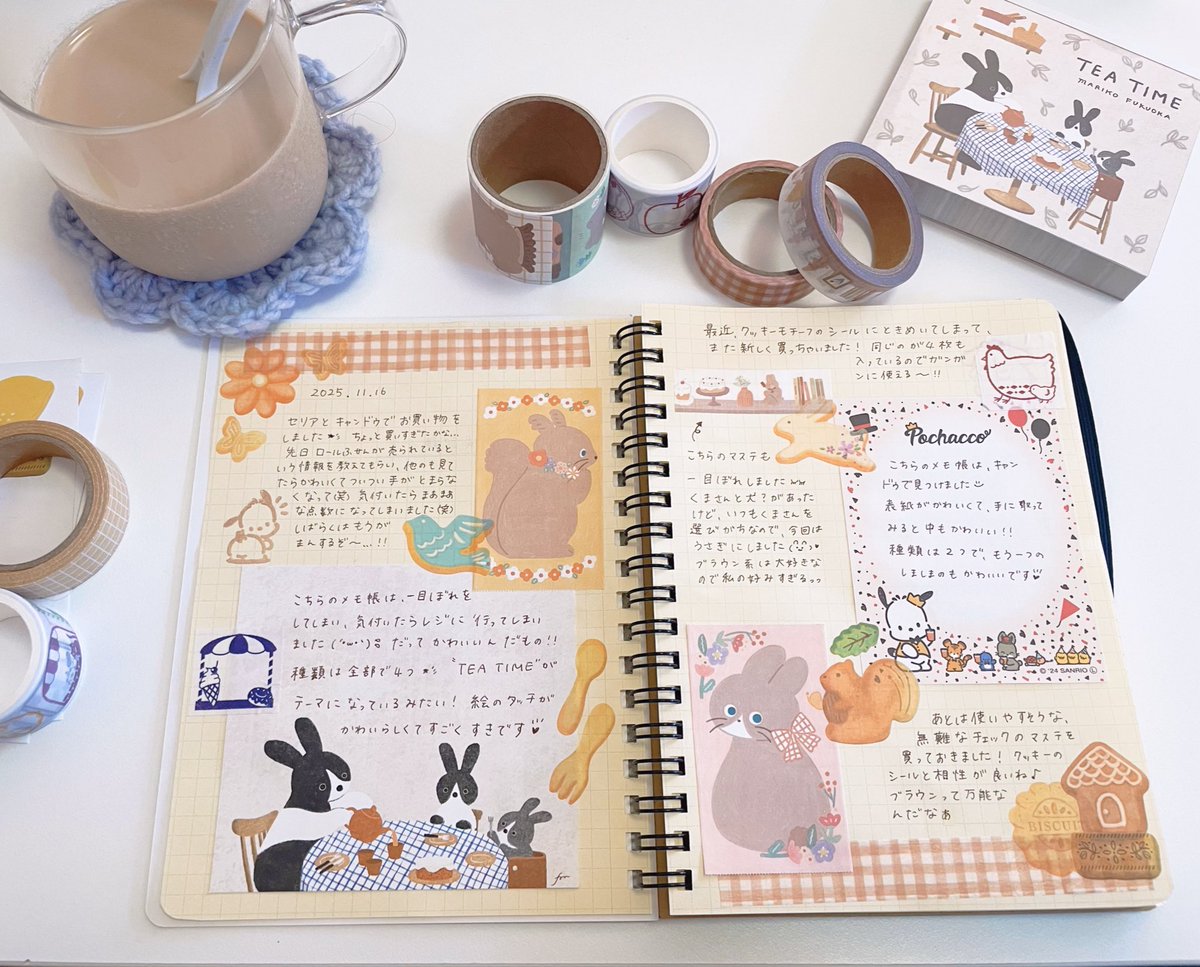 TEA TIME
MARIKO FUKUOKA
2025.11.16
セリアとキャンドゥでお買い物を
しました ちょっと買いすぎたかな…
先日ロールふせんが売られていると
いう情報を教えてもらい、他のも見て
たらかわいくてついつい手がとまらな
くなって(笑) 気付いたらまあまあ
な点数になってしまいました(笑)
しばらくはもうが
まんするぞ〜…!!
こちらのメモ帳は、一目ぼれを
してしまい、気付いたらレジに行ってしまい
ました だってかわいいんだもの!!
種類は全部で4つ "TEA TIME"が
テーマになっているみたい! 絵のタッチが
かわいらしくてすごくすきです
最近、クッキーモチーフのシールにときめいてしまって、
また新しく買っちゃいました! 同じのが4枚も
入っているのでガンガ
ンに使える〜!!
こちらのマステも
一目ぼれしましたww
くまさんと犬?があった
けど、いつもくまさんを
選びがちなので、今回は
うさぎにしました
ブラウン系は大好きな
ので私の好みすぎるっっ
Pochacco
こちらのメモ帳は、キャン
ドゥで見つけました
表紙がかわいくて、手に取って
みると中もかわいい!!
種類は2つで、もう一つの
しましまのもかわいいです
© '24 SANRIO Ⓛ
あとは使いやすそうな、
無難なチェックのマステを
買っておきました! クッキーの
シールと相性が良いね♪
ブラウンって万能な
んだなぁ
BISCUIT